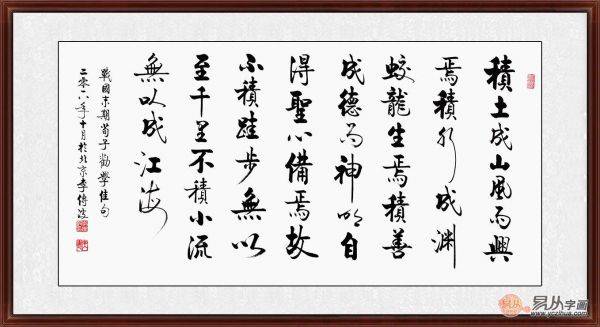 積土成山風雨興
焉積水成淵
蛟龍生焉積善
成德而神明自
得聖心備焉故
不積跬步無以
至千里不積小流
無以成江海
戰國末期荀子勸學佳句
二零一八年十月於北京李傳波
易从字画
www.yczihua.com